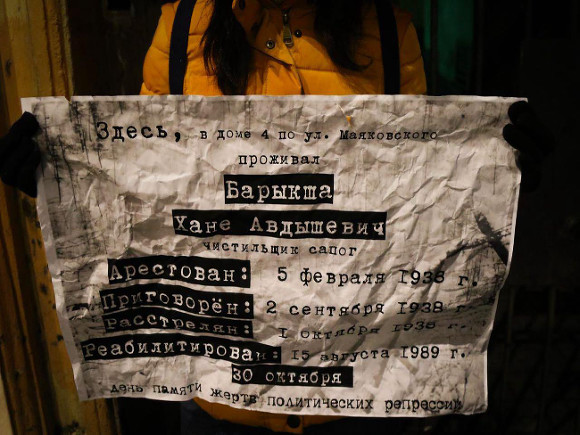 Здесь, в доме 4 по ул. Маяковского
проживал
Барыкша
Хане Авдышевич
чистильщик сапог
Арестован: 5 февраля 1938 г.
Приговорён: 2 сентября 1938 г
Расстрелян: 1 октября 1938 г.
Реабилитирован: 15 августа 1989 г.
30 октября
день памяти жертв политических репрессий